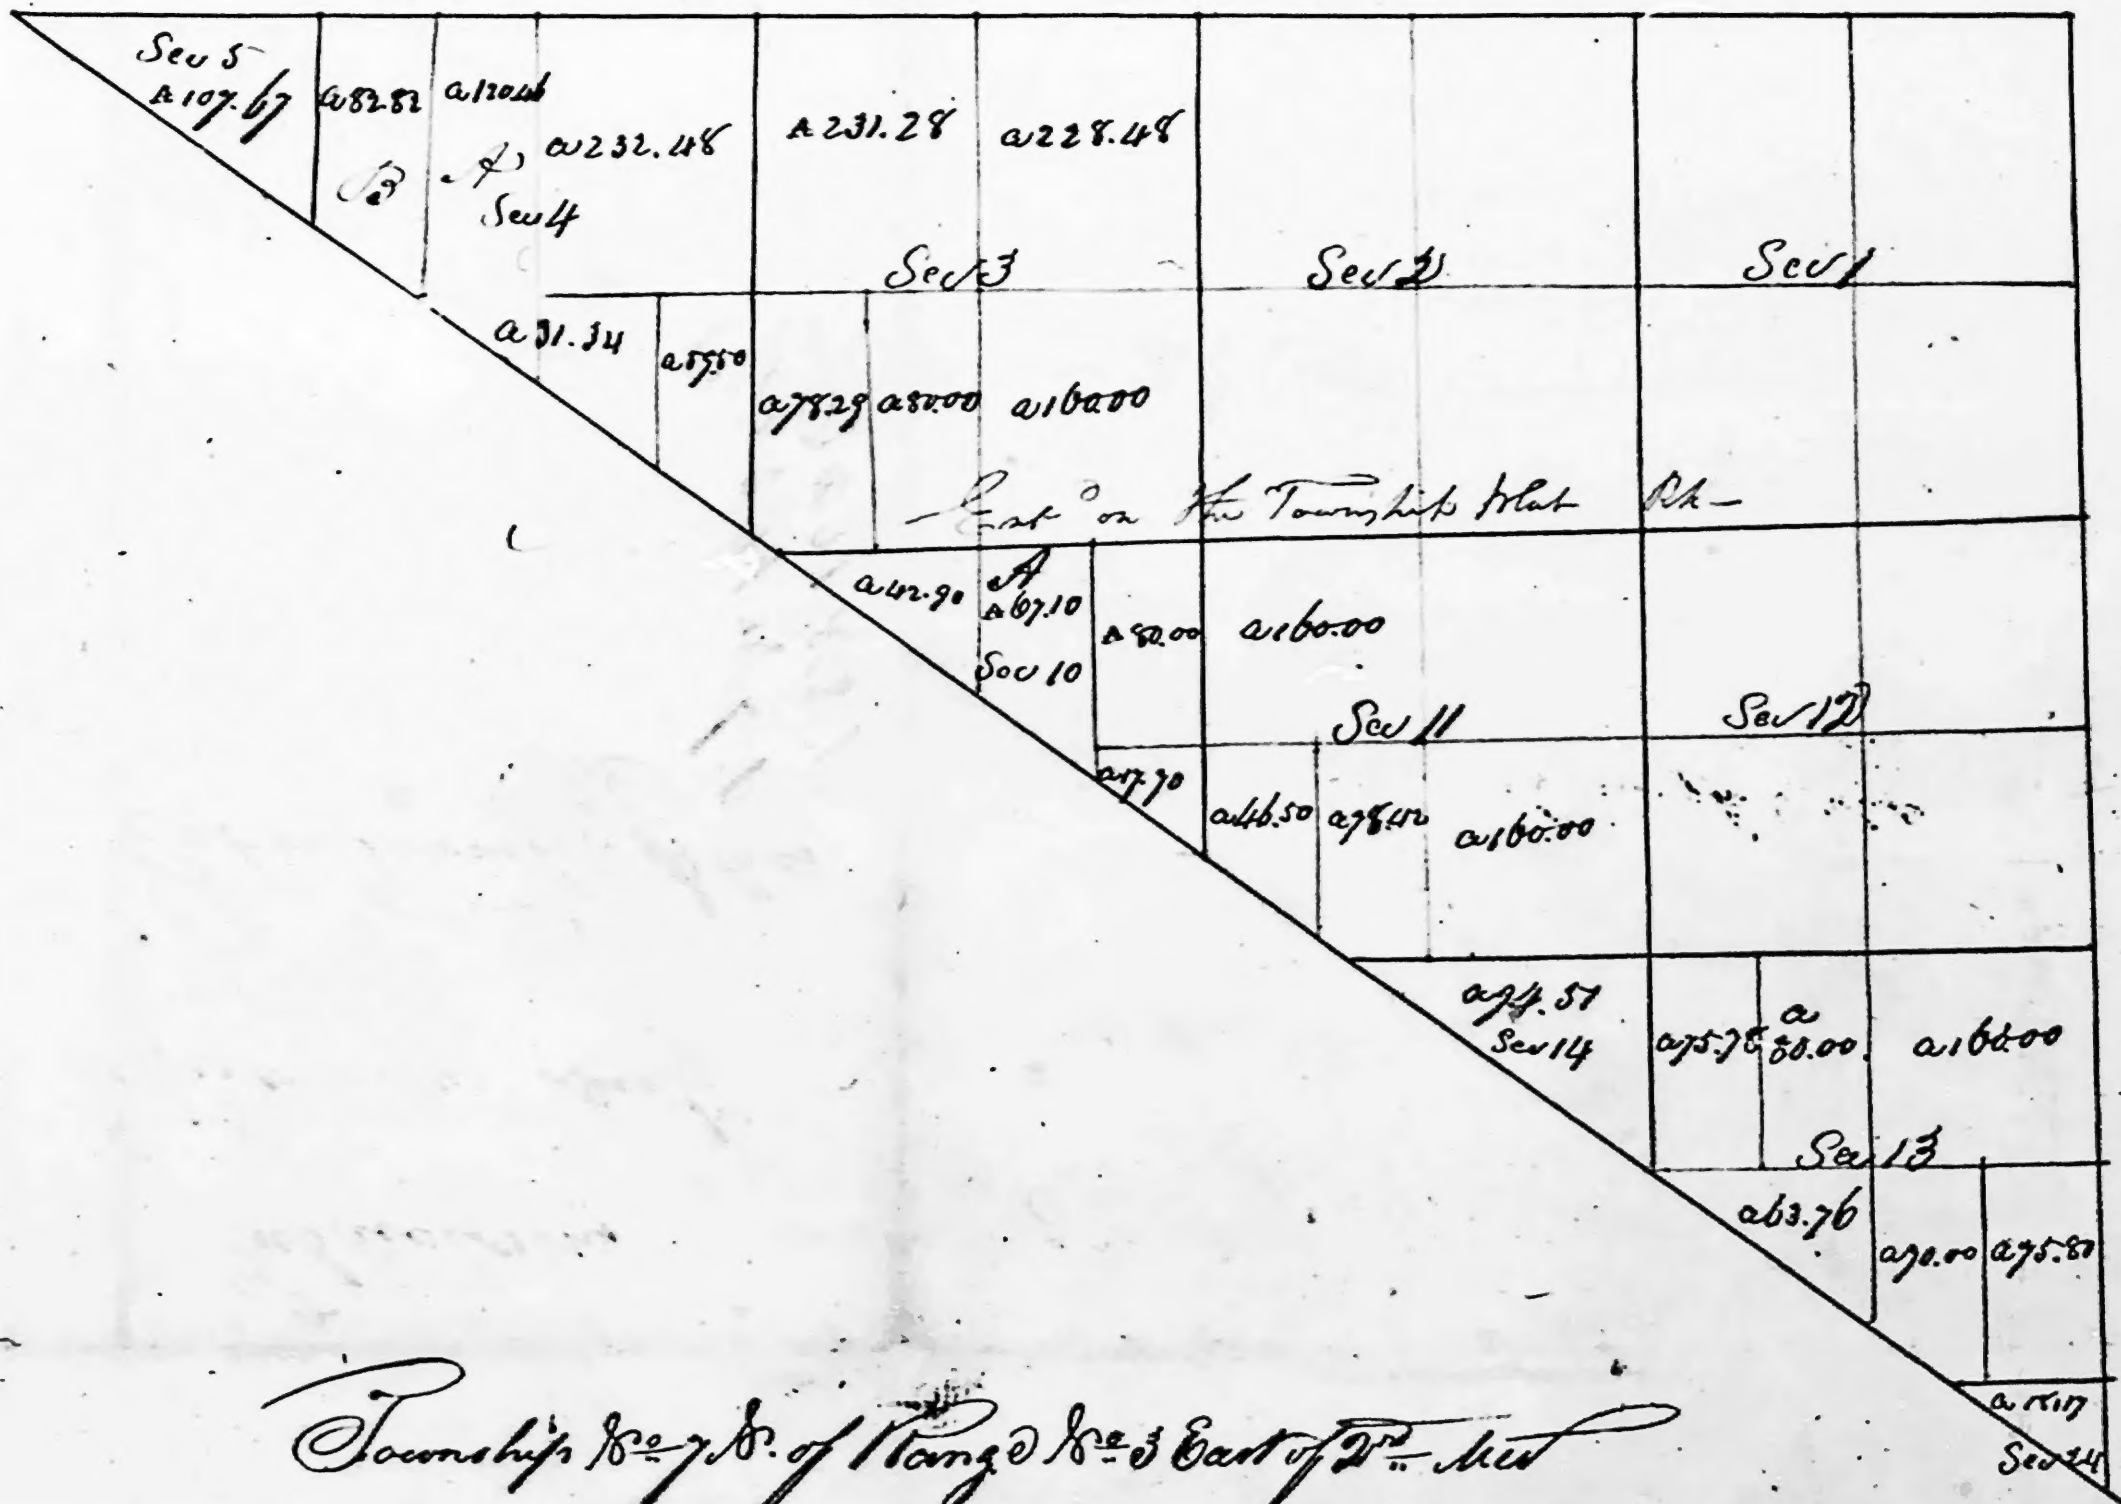 Sec 5
A 107.67
a 82.82
a 120.46
B
A
a 232.48
Sec 4
A 231.28
a 228.48
Sec 3
Sec 2
Sec 1
a 31.34
a 59.50
a 78.29
a 80.00
a 160.00
on the Township Plat
a 42.90
A
A 67.10
Sec 10
A 80.00
a 160.00
Sec 11
Sec 12
a 17.70
a 46.50
a 78.42
a 160.00
a 74.51
Sec 14
a 75.78
a
80.00
a 160.00
Sec 13
a 63.76
a 70.00
a 75.80
Sec 24
Township No 7 N. of Range No 3 East of 2nd Mer